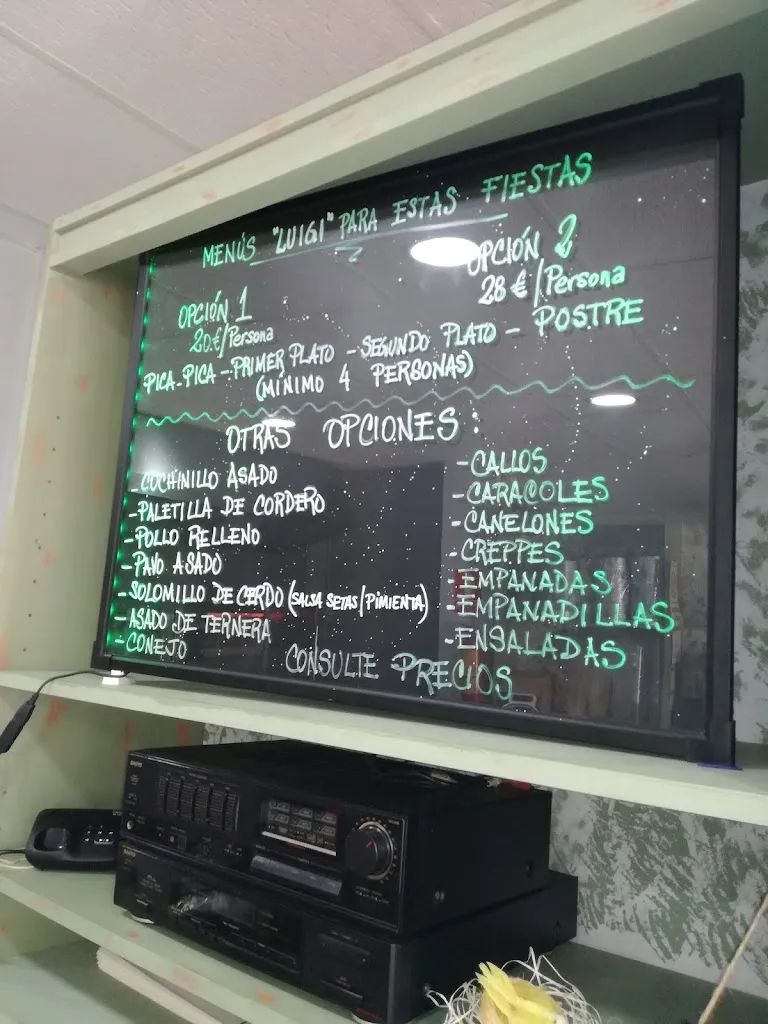 MENÚS "LUIGI" PARA ESTAS FIESTAS
OPCIÓN 1
20€/Persona
OPCIÓN 2
28€/Persona
PICA-PICA-PRIMER PLATO - SEGUNDO PLATO - POSTRE
(MÍNIMO 4 PERSONAS)
OTRAS OPCIONES:
-COCHINILLO ASADO
-PALETILLA DE CORDERO
-POLLO RELLENO
-PAVO ASADO
-SOLOMILLO DE CERDO (SALSA SETAS/PIMIENTA)
-ASADO DE TERNERA
-CONEJO
-CALLOS
-CARACOLES
-CANELONES
-CREPPES
-EMPANADAS
-EMPANADILLAS
-ENSALADAS
CONSULTE PRECIOS
SANYO
SANYO